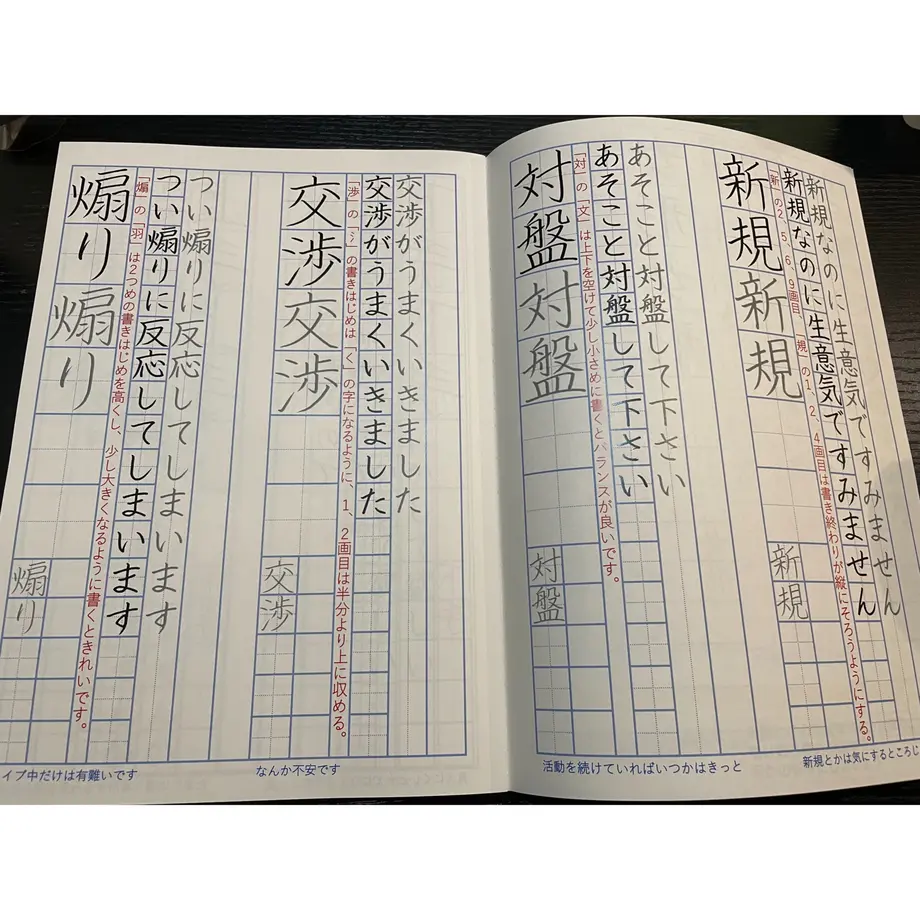 新規なのに生意気ですみません
新規なのに生意気ですみません
「新」の2、5、6、9画目、「規」の1、2、4画目は書き終わりが縦にそろうようにする。
新規新規
新規
新規とかは気にするところじ
あそこと対盤して下さい
あそこと対盤して下さい
「対」の「文」は上下を空けて少し小さめに書くとバランスが良いです。
対盤対盤
対盤
活動を続けていればいつかはきっと
交渉がうまくいきました
交渉がうまくいきました
「渉」の「氵」の書きはじめは「く」の字になるように、1、2画目は半分より上に収める。
交渉交渉
交渉
なんか不安です
つい煽りに反応してしまいます
つい煽りに反応してしまいます
「煽」の「羽」は2つめの書きはじめを高くし、少し大きくなるように書くときれいです。
煽り煽り
煽り
イブ中だけは有難いです